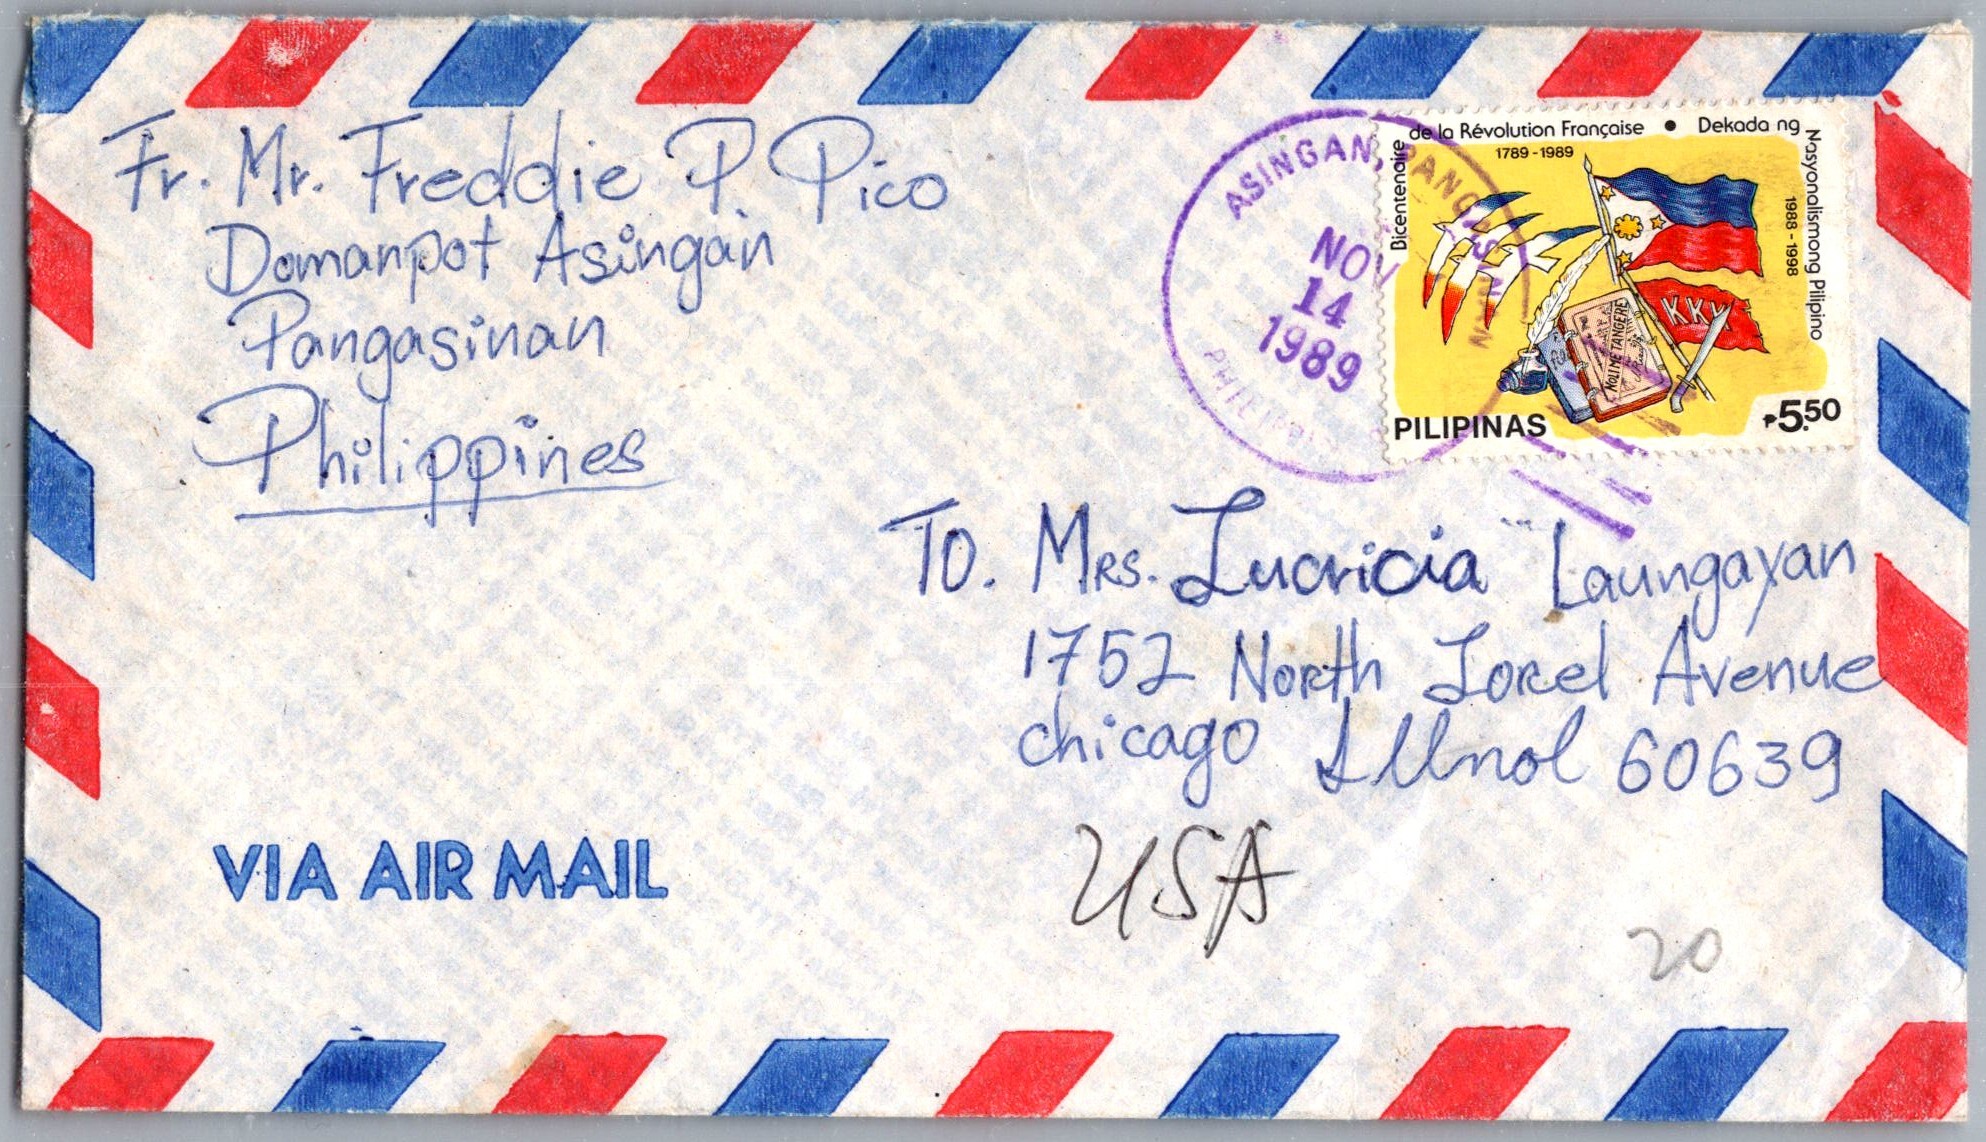 Fr. Mr. Freddie P. Pico
Domanpot Asingan
Pangasinan
Philippines
ASINGAN, PANGASINAN
NOV
14
1989
PHILIPPINES
Bicentenaire de la Révolution Française • Dekada ng Nasyonalismong Pilipino
1789-1989
1988-1998
KKK
NOLI ME TANGERE
PILIPINAS
₱5.50
TO. Mrs. Lucricia Laungayan
1752 North Lorel Avenue
chicago Illnol 60639
USA
VIA AIR MAIL
20